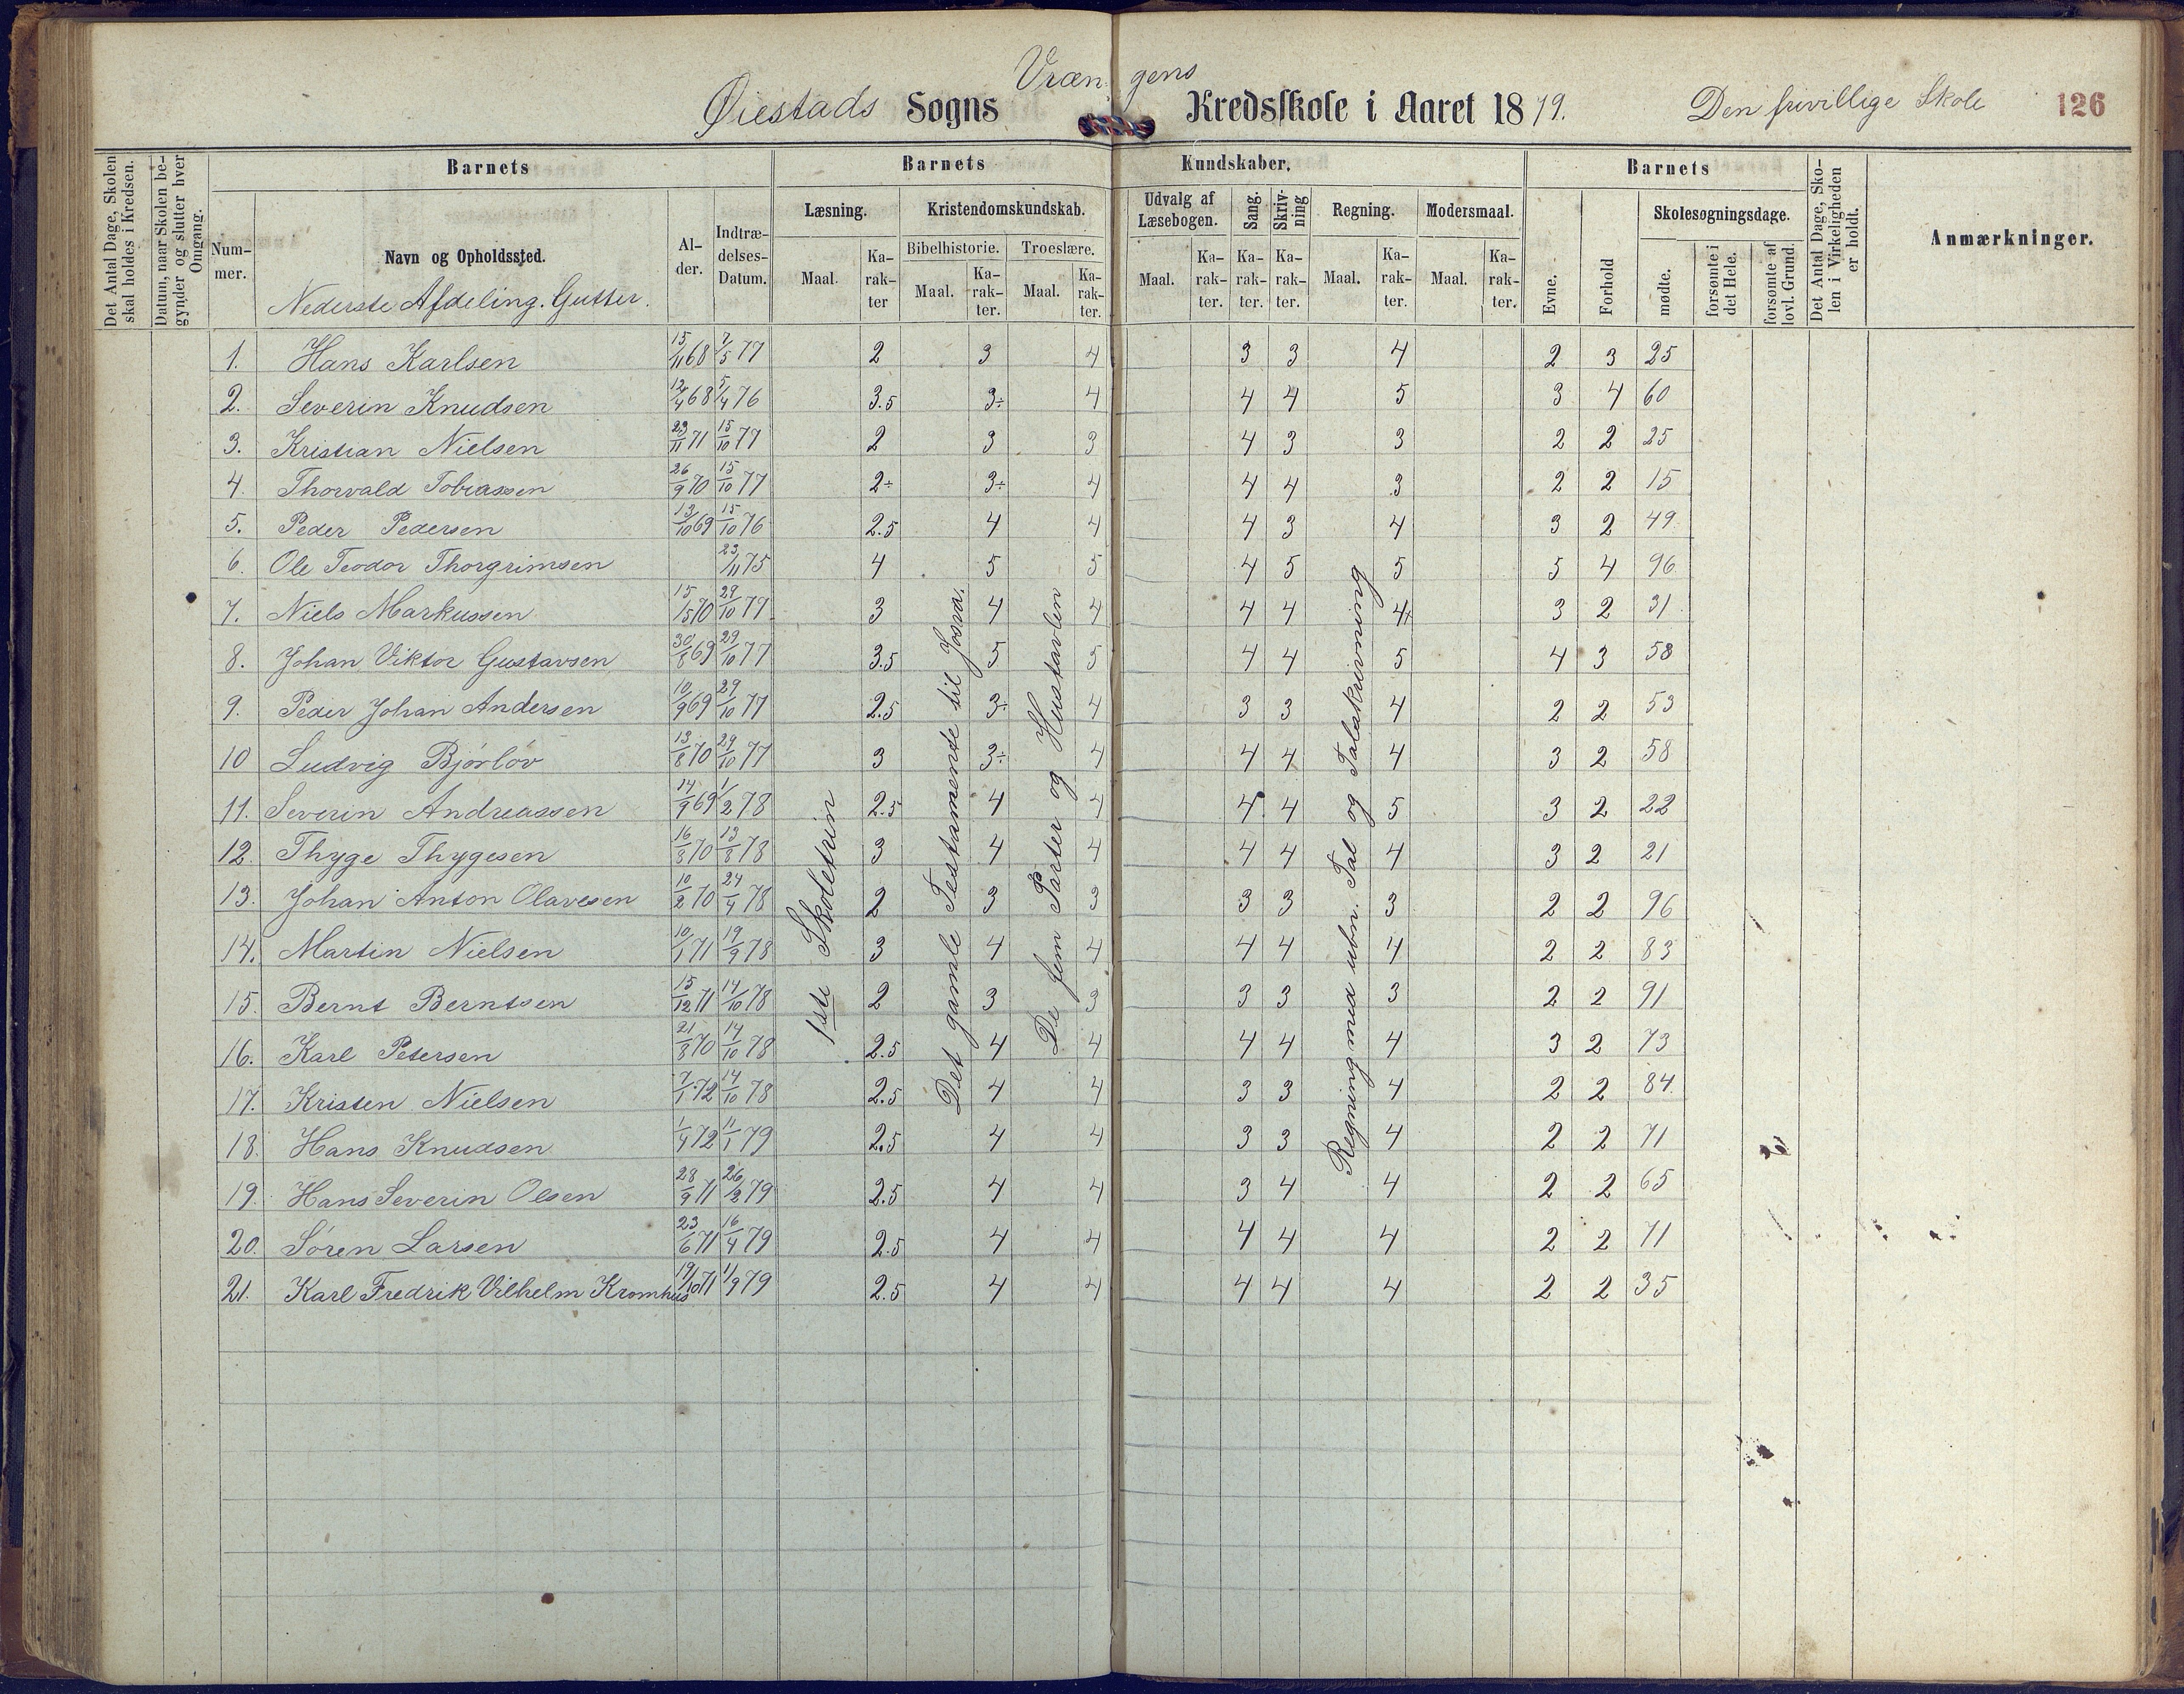 Vræn- gens
Øiestads Sogns Kredsskole i Aaret 1879. Den frivillige Skole 126
Det Antal Dage, Skolen skal holdes i Kredsen.
Datum, naar Skolen begynder og slutter hver Omgang.
Barnets
Barnets Kundskaber.
Barnets
Det Antal Dage, Skolen i Virkeligheden er holdt.
Anmærkninger.
Nummer.
Navn og Opholdssted.
Nederste Afdeling. Gutter.
Alder.
Indtrædelses-Datum.
Læsning. Maal. Karakter
Kristendomskundskab.
Bibelhistorie. Maal. Karakter.
Troeslære. Maal. Karakter.
Udvalg af Læsebogen. Maal. Karakter.
Sang. Karakter.
Skrivning Karakter.
Regning. Maal. Karakter.
Modersmaal. Maal. Karakter.
Evne. Forhold
Skolesøgningsdage.
mødte. forsømte i det Hele. forsømte af lovl. Grund.
1. Hans Karlsen 15/11 68 7/5 77 2 3 4 3 3 4 2 3 25
2. Severin Knudsen 12/4 68 5/4 76 3.5 3÷ 4 4 4 5 3 4 60
3. Kristian Nielsen 23/11 71 15/10 77 2 3 3 4 3 3 2 2 25
4. Thorvald Tobiassen 26/9 70 15/10 77 2÷ 3÷ 4 4 4 3 2 2 15
5. Peder Pedersen 13/10 69 15/10 76 2.5 4 4 4 3 4 3 2 49
6. Ole Teodor Thorgrimsen 23/11 75 4 5 5 4 5 5 5 4 96
7. Niels Markussen 70 29/10 77 3 4 4 4 4 4 3 2 31
8. Johan Viktor Gustavsen 30/8 69 29/10 77 3.5 5 5 4 4 5 4 3 58
9. Peder Johan Andersen 10/9 69 29/10 77 2.5 3÷ 4 3 3 4 2 2 53
10 Ludvig Bjørløv 13/8 70 29/10 77 3 3÷ 4 4 4 4 3 2 58
11. Severin Andreassen 14/9 69 1/2 78 2.5 4 4 4 4 5 3 2 22
12. Thyge Thygesen 16/8 70 13/8 78 3 4 4 4 4 4 3 2 21
13. Johan Anton Olavesen 10/2 70 24/4 78 2 3 3 3 3 3 2 2 96
14. Martin Nielsen 10/1 71 19/9 78 3 4 4 4 4 4 2 2 83
15. Bernt Berntsen 15/12 71 14/10 78 2 3 3 3 3 3 2 2 91
16. Karl Petersen 21/8 70 14/10 78 2.5 4 4 4 4 4 3 2 73
17. Kristen Nielsen 7/1 72 14/10 78 2.5 4 4 3 3 4 2 2 84
18. Hans Knudsen 1/4 72 11/1 79 2.5 4 4 3 3 4 2 2 71
19. Hans Severin Olsen 28/9 71 26/2 79 2.5 4 4 3 4 4 2 2 65
20. Søren Larsen 23/6 71 16/4 79 2.5 4 4 4 4 4 2 2 71
21. Karl Fredrik Vilhelm Kromhus 19/10 71 1/9 79 2.5 4 4 4 4 4 2 2 35
1ste Skoletrin
Det gamle Testamente til Josva.
De fem Parter og Hustavlen
Regning med ubn. Tal og Talskrivning